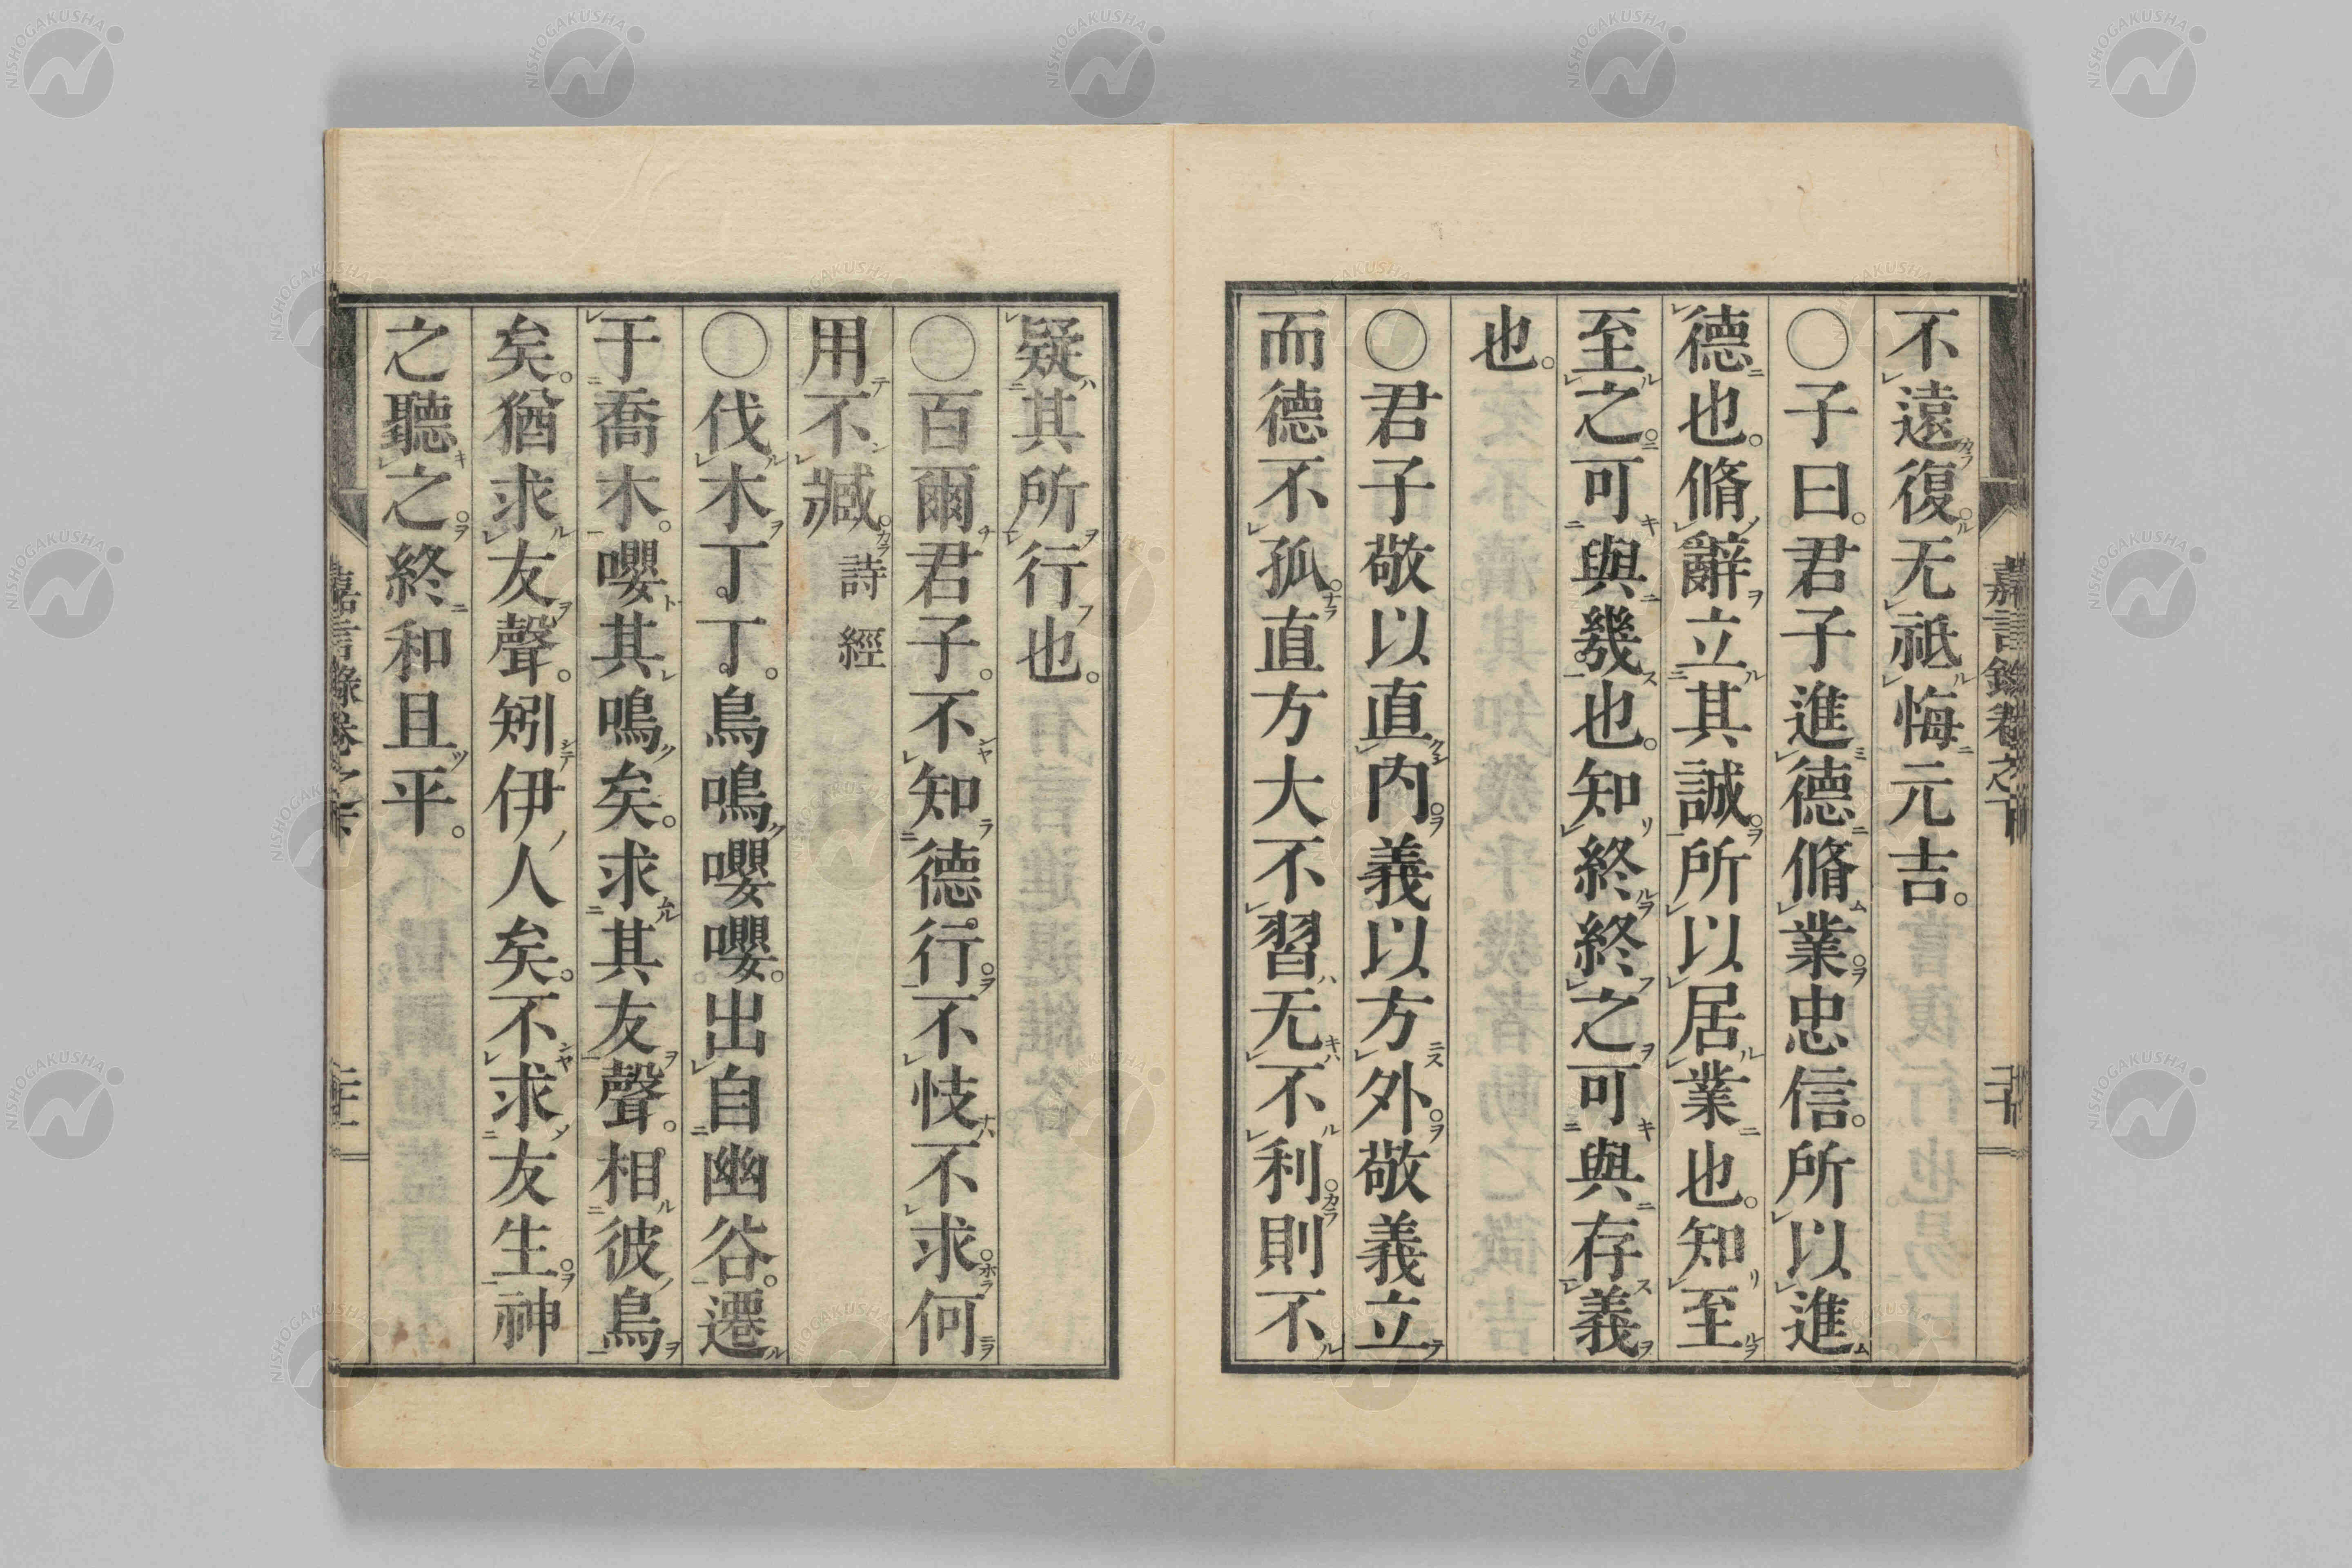 嘉言錄卷之下
不遠復。无祗悔元吉。
○子曰。君子進德脩業。忠信。所以進
德也。脩辭立其誠。所以居業也。知至
至之。可與幾也。知終終之可與存義
也。
○君子敬以直内。義以方外。敬義立
而德不孤。直方大不習无不利。則不
疑其所行也。
○百爾君子。不知德行。不忮不求。何
用不臧。詩經
○伐木丁丁。鳥鳴嚶嚶。出自幽谷。遷
于喬木。嚶其鳴矣。求其友聲。相彼鳥
矣。猶求友聲。矧伊人矣。不求友生。神
之聽之。終和且平。
NISHOGAKUSHA